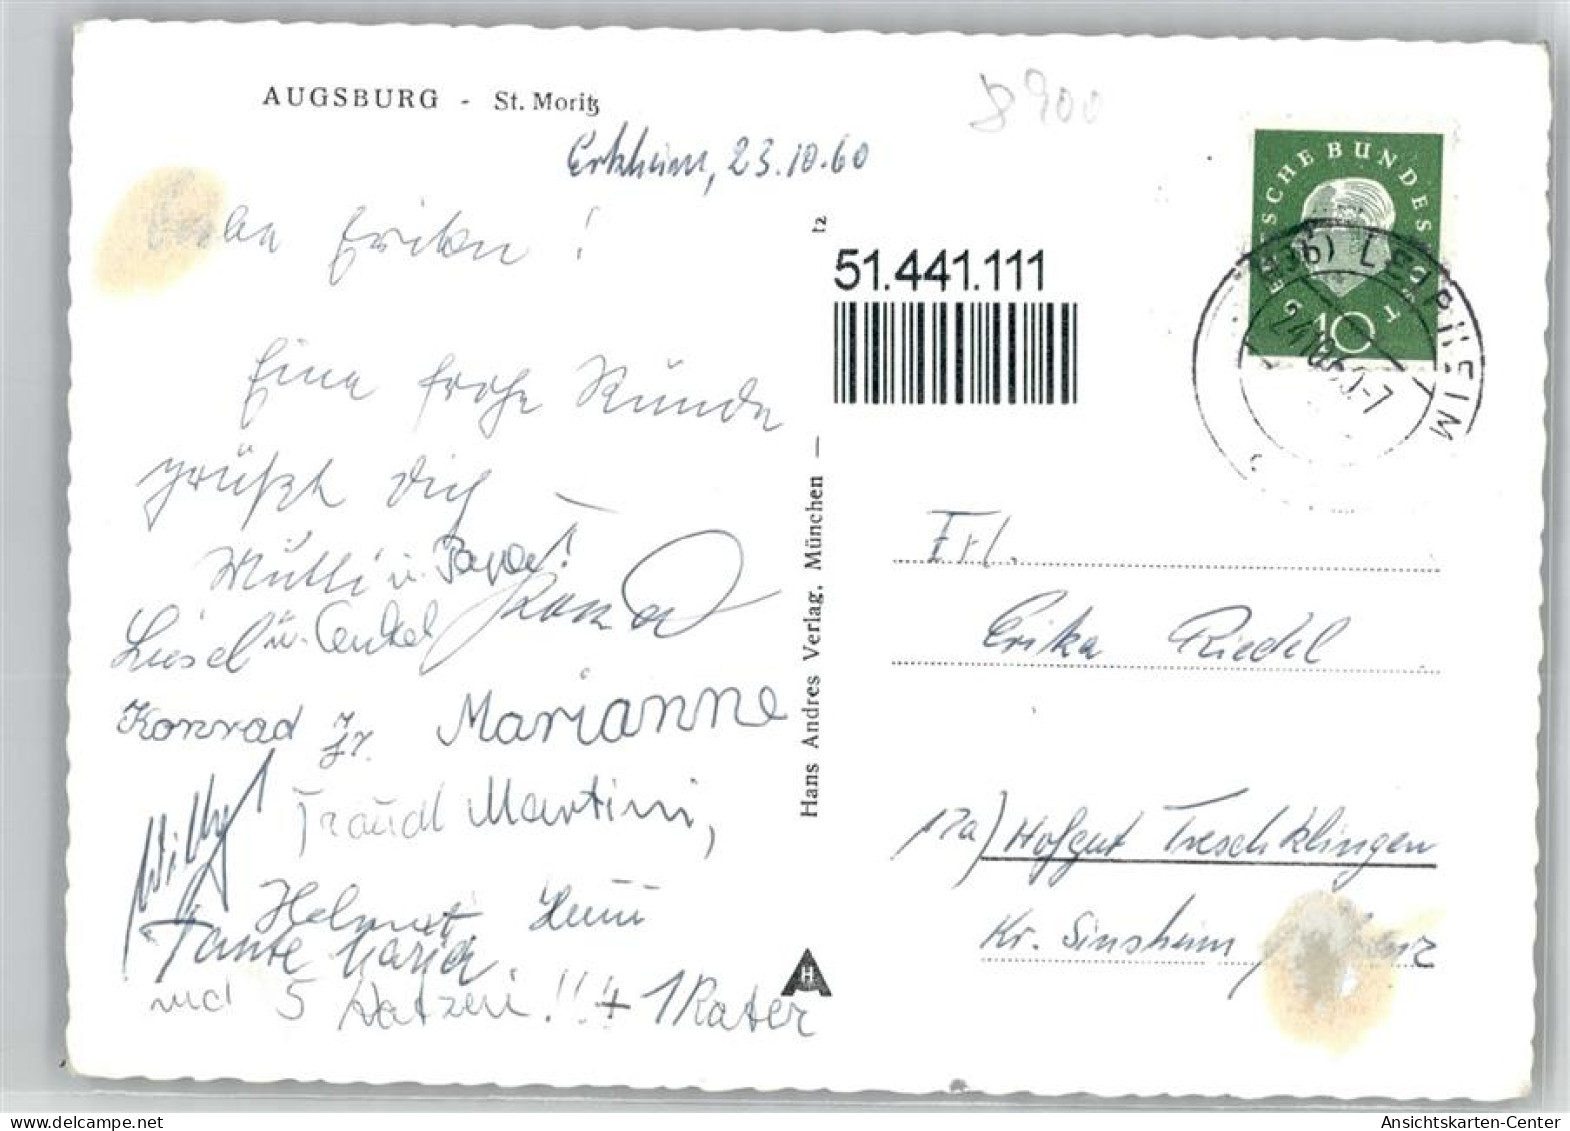 AUGSBURG - St. Moritz
8900
Erkheim, 23.10.60
Liebe Erika!
Eine frohe Runde
grüßt Dich
Mutti u. Papa!
Liesel u. Konrad
Konrad jr. Marianne
Willy Traudl Martini,
Helmut
Tante Maria
und 5 Katzen!! + 1 Kater
t2
51.441.111
Hans Andres Verlag, München —
DEUTSCHE BUNDESPOST
10
24.10.60-7
Frl.
Erika Riedel
17a) Hofgut Treschklingen
Kr. Sinsheim
H
A
Ansichtskarten-Center